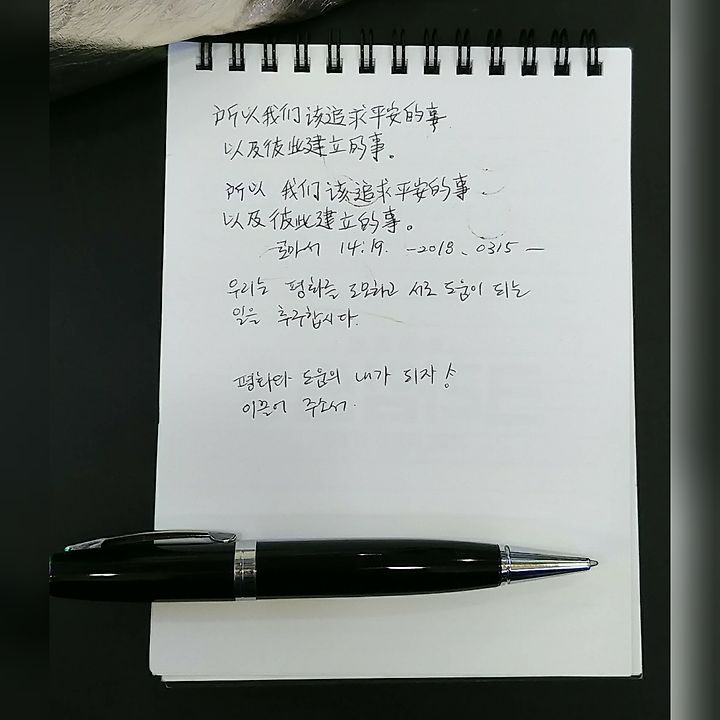 所以我们该追求平安的事
以及彼此建立的事。
所以 我们该追求平安的事
以及彼此建立的事。
로마서 14.19. -2018.0315-
우리는 평화를 도모하고 서로 도움이 되는
일을 추구합시다.
평화와 도움의 내가 되자!
이끌어 주소서.